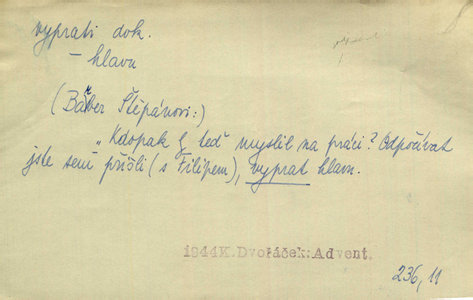 vyprati dok.
– hlavu
(Bárber Štěpánovi:)
„Kdopak by teď myslil na práci? Odpočívat
jste sem přišli (s Filipem), vyprat hlavu.
1944 K. Dvořáček: Advent.
236, 11